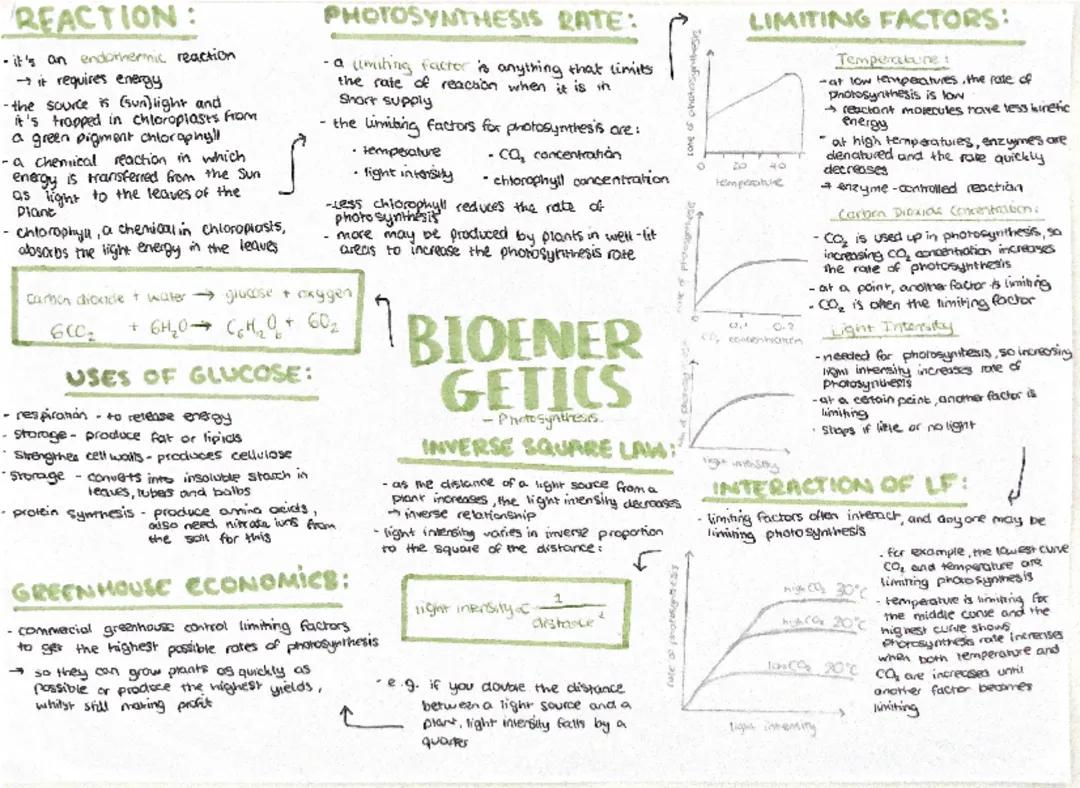 REACTION:
- it's an endothermic reaction
→ it requires energy
- the source is (sun)light and
it's trapped in chloroplasts from
a green pigment chlorophyll
- a chemical reaction in which
energy is transferred from the Sun
as light to the leaves of the
plant
- chlorophyll, a chemical in chloroplasts,
absorbs the light energy in the leaves
carbon dioxide + water → glucose + oxygen
6CO₂ + 6H₂O → C₆H₁₂O₆ + 6O₂
USES OF GLUCOSE:
- respiration - to release energy
- storage - produce fat or lipids
- strengthen cell walls - produces cellulose
- storage - converts into insoluble starch in
leaves, tubes and bulbs
- protein synthesis - produce amino acids,
also need nitrate ions from
the soil for this
GREENHOUSE ECONOMICS:
- commercial greenhouse control limiting factors
to get the highest possible rates of photosynthesis
→ so they can grow plants as quickly as
possible or produce the highest yields,
whilst still making profit
PHOTOSYNTHESIS RATE:
- a limiting factor is anything that limits
the rate of reaction when it is in
short supply
- the limiting factors for photosynthesis are:
• temperature • CO₂ concentration
• light intensity • chlorophyll concentration
- less chlorophyll reduces the rate of
photosynthesis
- more may be produced by plants in well-lit
areas to increase the photosynthesis rate
BIOENER
GETICS
- Photosynthesis -
INVERSE SQUARE LAW:
- as the distance of a light source from a
plant increases, the light intensity decreases
→ inverse relationship
- light intensity varies in inverse proportion
to the square of the distance:
light intensity ∝ 1 / distance²
- e.g. if you double the distance
between a light source and a
plant, light intensity falls by a
quarter
LIMITING FACTORS:
rate of photosynthesis
0 20 40
temperature
Temperature:
- at low temperatures, the rate of
photosynthesis is low
→ reactant molecules have less kinetic
energy
- at high temperatures, enzymes are
denatured and the rate quickly
decreases
→ enzyme-controlled reaction
rate of photosynthesis
0.1 0.2
CO₂ concentration
Carbon Dioxide Concentration:
- CO₂ is used up in photosynthesis, so
increasing CO₂ concentration increases
the rate of photosynthesis
- at a point, another factor is limiting
- CO₂ is often the limiting factor
light intensity
Light Intensity
- needed for photosynthesis, so increasing
light intensity increases rate of
photosynthesis
- at a certain point, another factor is
limiting
- stops if little or no light
INTERACTION OF LF:
- limiting factors often interact, and any one may be
limiting photosynthesis
rate of photosynthesis
high CO₂ 30°C
high CO₂ 20°C
low CO₂ 20°C
light intensity
- for example, the lowest curve
CO₂ and temperature are
limiting photosynthesis
- temperature is limiting for
the middle curve and the
highest curve shows
photosynthesis rate increases
when both temperature and
CO₂ are increased until
another factor becomes
limiting